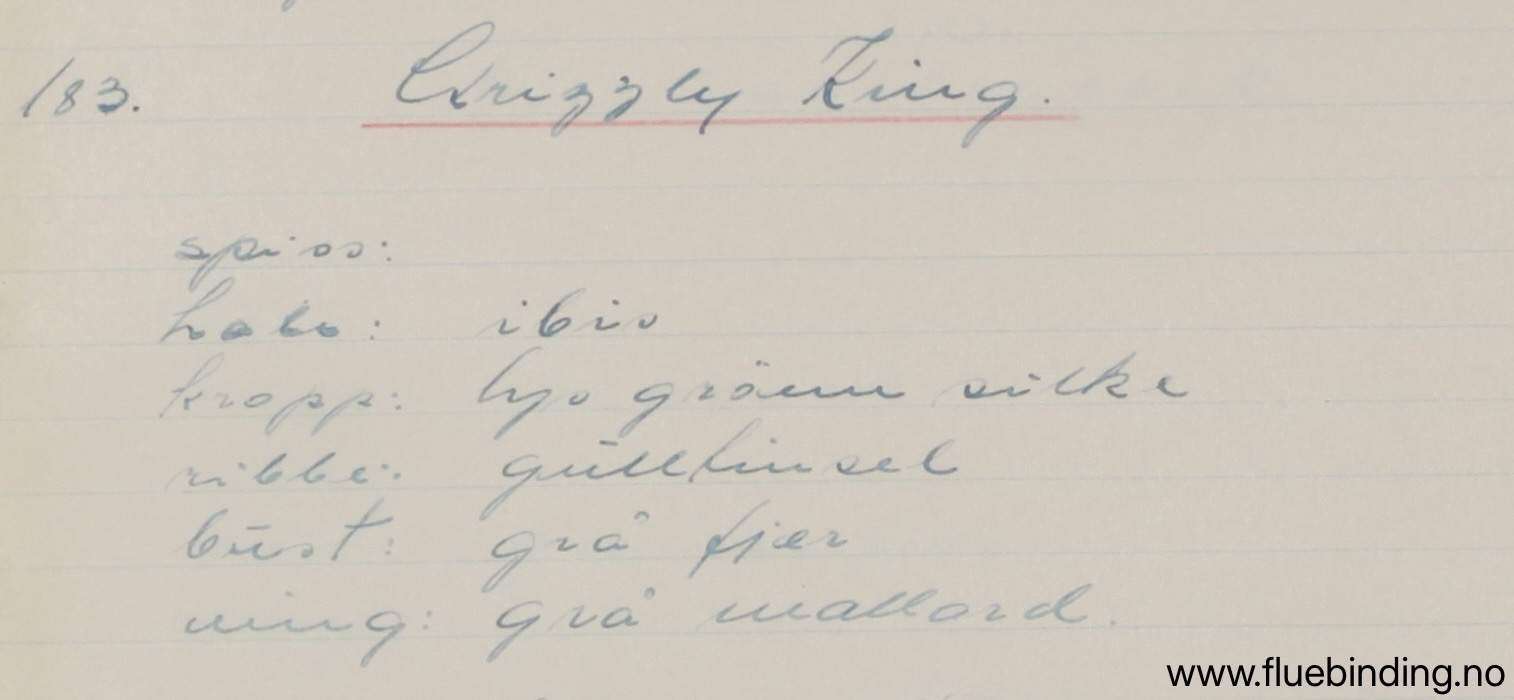 183. Grizzly King.
spiss:
hale: ibis
kropp: lys grönn silke
ribbe: gulltinsel
bust: grå fjær
ving: grå mallard.
www.fluebinding.no